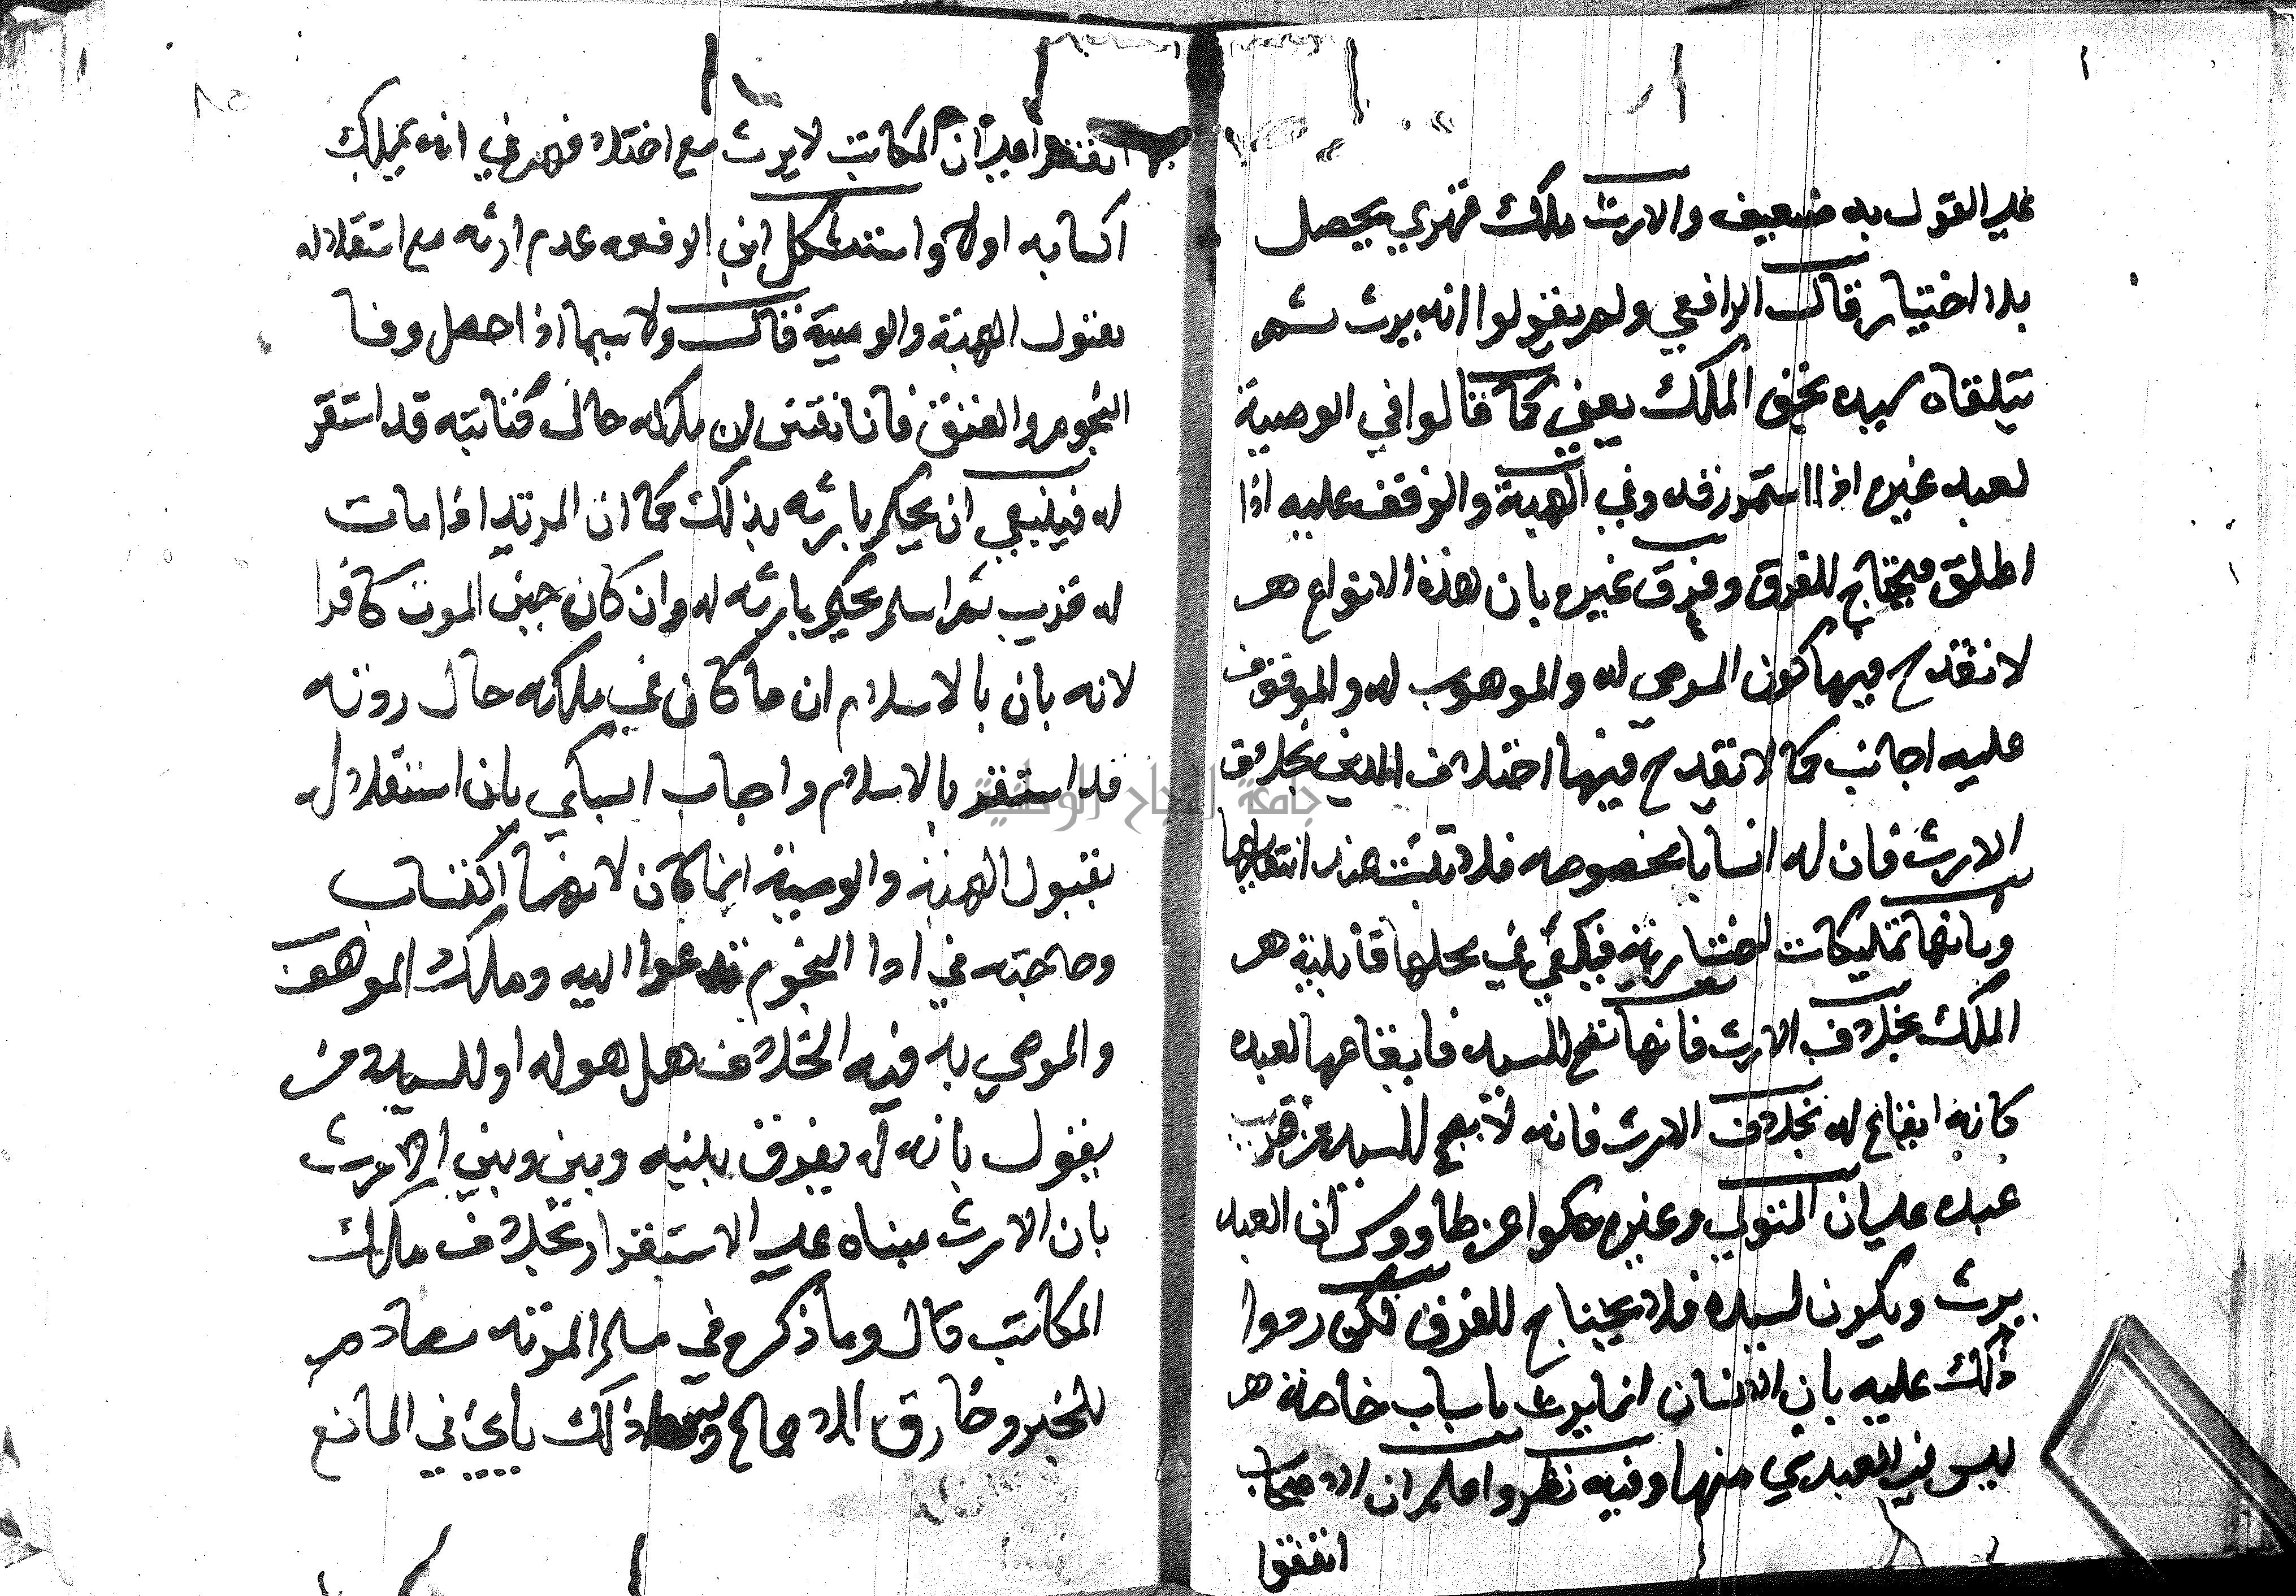 علي القول به ضعيف والارث ملك قهري يحصل
بلا اختيار قال الرافعي ولم يقولوا انه يرث ثم
يتلقاه سيده بحق الملك يعني كما قالوا في الوصية
لعبد غيره اذا استمر رقه وفي الهبة والوقف عليه اذا
اطلق فيحتاج للفرق وفرق غيره بان هذه الانواع
لا تقدح فيها كون الموصي له والموهوب له والموقوف
عليه اجانب كما لا تقدح فيها اختلاف الدين بخلاف
الارث فان له انسابا مخصوصه فلا تثبت عند انتفايها
وبانها تمليكات اختياريه فيكفي في محلها قابلية
الملك بخلاف الارث فانها تقع للسيد فايقاعها لعبده
كانه ايقاع له بخلاف الارث فانه لا يقع للسيد عن قريب
عبده علي ان المتولي وغيره حكوا عن طاووس ان العبد
يرث ويكون لسيده فلا يحتاج للفرق لكن ردوا
ذلك عليه بان الانسان انما يرث باسباب خاصة
ليس في العبد شي منها وفيه نظر واعلم ان الاصحاب
اتفقوا
اتفقوا علي ان المكاتب لا يرث مع اختلافهم في انه يملك
اكسابه اولا واستشكل ابن الرفعه عدم ارثه مع استقلاله
بقبول الهبة والوصية قال ولا سيما اذا حصل وفا
النجوم والعتق فانا نتبين ان ملكه حال كتابته قد استقر
له فينبغي ان يحكم بارثه بذلك كما ان المرتد اذا مات
له قريب ثم اسلم يحكم بارثه له وان كان حين الموت كافرا
لانه بان بالاسلام ان ما كان في ملكه حال ردته
قد استقر بالاسلام واجاب السبكي بان استقلاله
بقبول الهبة والوصية انما كان لانهما اكتساب
وحاجته في ادا النجوم تدعوا اليه وملك الموهوب
والموصي به فيه الخلاف هل هو له او للسيد فمن
يقول بانه له يفرق بينه وبين وبين الارث
بان الارث مبناه علي الاستقرار بخلاف ملك
المكاتب قال وما ذكره في مسلم المرتد مصادم
للخبر وخارق للاجماع ذلك ياتي في المانع
جامعة النجاح الوطنية